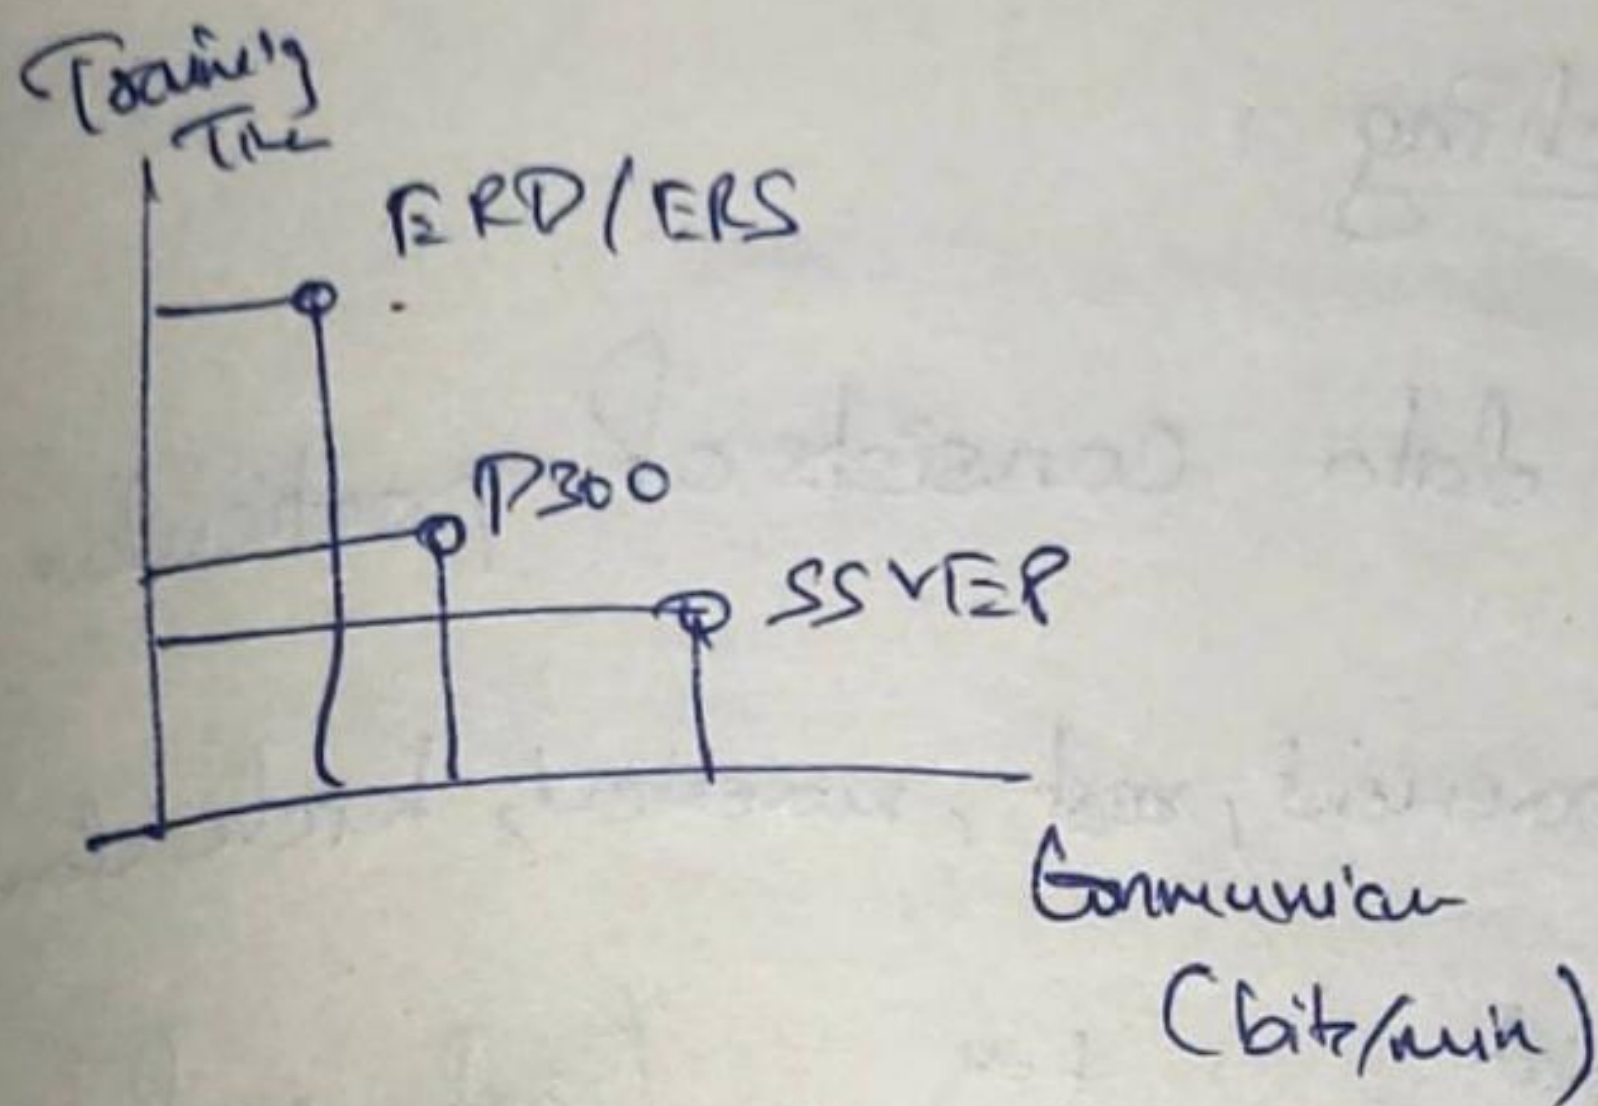 Training
Time
ERD/ERS
P300
SSVEP
Communian
(bits/min)